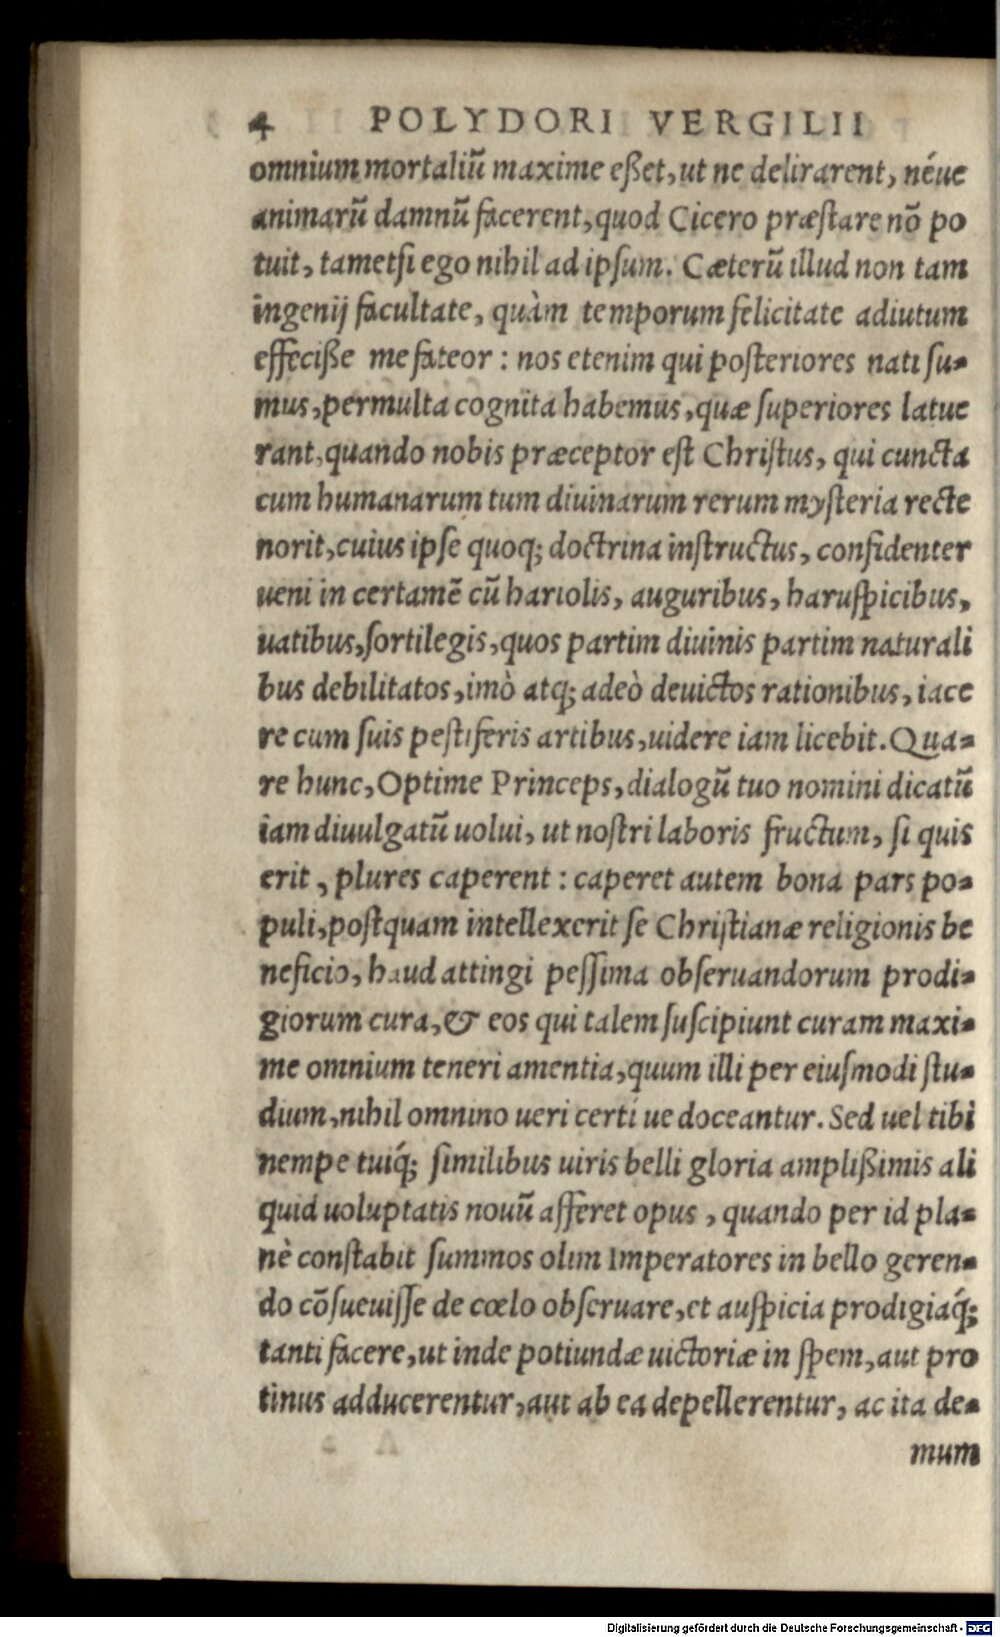 4 POLYDORI VERGILII
omnium mortaliũ maxime eßet, ut ne delirarent, néue
animarũ damnũ facerent, quod Cicero præſtare nõ po
tuit, tametſi ego nihil ad ipſum. Cæterũ illud non tam
ingenij facultate, quàm temporum felicitate adiutum
effeciße me fateor : nos etenim qui poſteriores nati ſu⸗
mus, permulta cognita habemus, quæ ſuperiores latue
rant, quando nobis præceptor eſt Chriſtus, qui cuncta
cum humanarum tum diuinarum rerum myſteria recte
norit, cuius ipſe quoq; doctrina inſtructus, confidenter
ueni in certamẽ cũ hariolis, auguribus, haruſpicibus,
uatibus, ſortilegis, quos partim diuinis partim naturali
bus debilitatos, imò atq; adeò deuictos rationibus, iace
re cum ſuis peſtiferis artibus, uidere iam licebit. Qua⸗
re hunc, Optime Princeps, dialogũ tuo nomini dicatũ
iam diuulgatũ uolui, ut noſtri laboris fructum, ſi quis
erit, plures caperent : caperet autem bona pars po⸗
puli, poſtquam intellexerit ſe Chriſtianæ religionis be
neficio, haud attingi peſſima obſeruandorum prodi⸗
giorum cura, & eos qui talem ſuſcipiunt curam maxi⸗
me omnium teneri amentia, quum illi per eiuſmodi ſtu⸗
dium, nihil omnino ueri certi ue doceantur. Sed uel tibi
nempe tuiq́; ſimilibus uiris belli gloria amplißimis ali
quid uoluptatis nouũ afferet opus, quando per id pla⸗
nè conſtabit ſummos olim Imperatores in bello geren⸗
do cõſueuiſſe de cœlo obſeruare, et auſpicia prodigiaq́;
tanti facere, ut inde potiundæ uictoriæ in ſpem, aut pro
tinus adducerentur, aut ab ea depellerentur, ac ita de⸗
mum
Digitalisierung gefördert durch die Deutsche Forschungsgemeinschaft - DFG